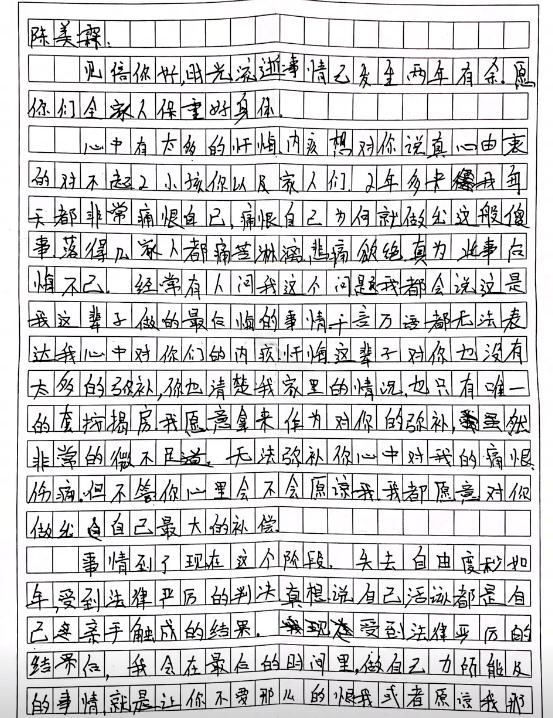 陈美霖.
见信你好,时光流逝事情已发生两年有余.愿
你们全家人保重好身体.
心中有太多的忏悔内疚想对你说真心由衷
的对不起2小孩你以及家人们.2年多来我每
天都非常痛恨自己,痛恨自己为何就做出这般傻
事.落得几家人都痛苦淋漓,悲痛欲绝真为此事后
悔不已.经常有人问我这个问题我都会说这是
我这辈子做的最后悔的事情千言万语都无法表
达我心中对你们的内疚忏悔这辈子对你也没有
太多的弥补,你也清楚我家里的情况,也只有唯一
的套按揭房我愿意拿来作为对你的弥补,虽然
非常的微不足道.无法弥补你心中对我的痛恨
伤痛.但不管你心里会不会原谅我我都愿意对你
做出自己最大的补偿
事情到了现在这个阶段.失去自由度秒如
年,受到法律严厉的判决真想说自己活该都是自
己亲手触成的结果.受到法律严厉的
结果后,我会在最后的时间里,做自己力所能及
的事情,就是让你不要那么的恨我或者原谅我那